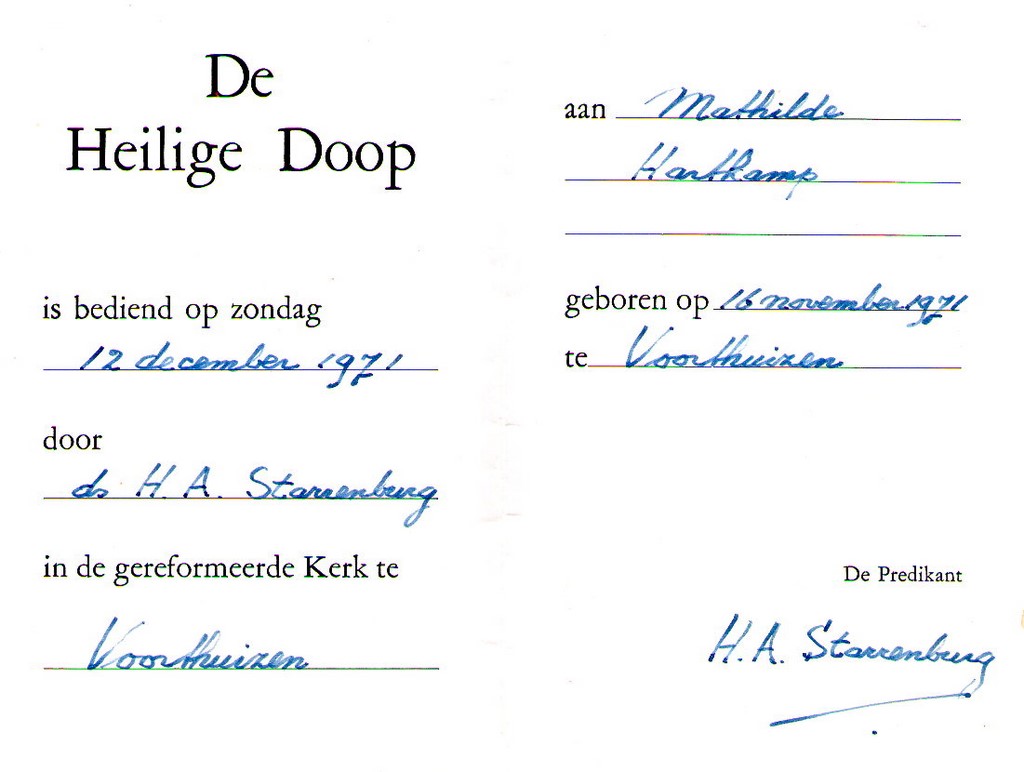 De
Heilige Doop
is bediend op zondag
12 december 1971
door
ds H. A. Starrenburg
in de gereformeerde Kerk te
Voorthuizen
aan Mathilde
Hartkamp
geboren op 16 november 1971
te Voorthuizen
De Predikant
H. A. Starrenburg